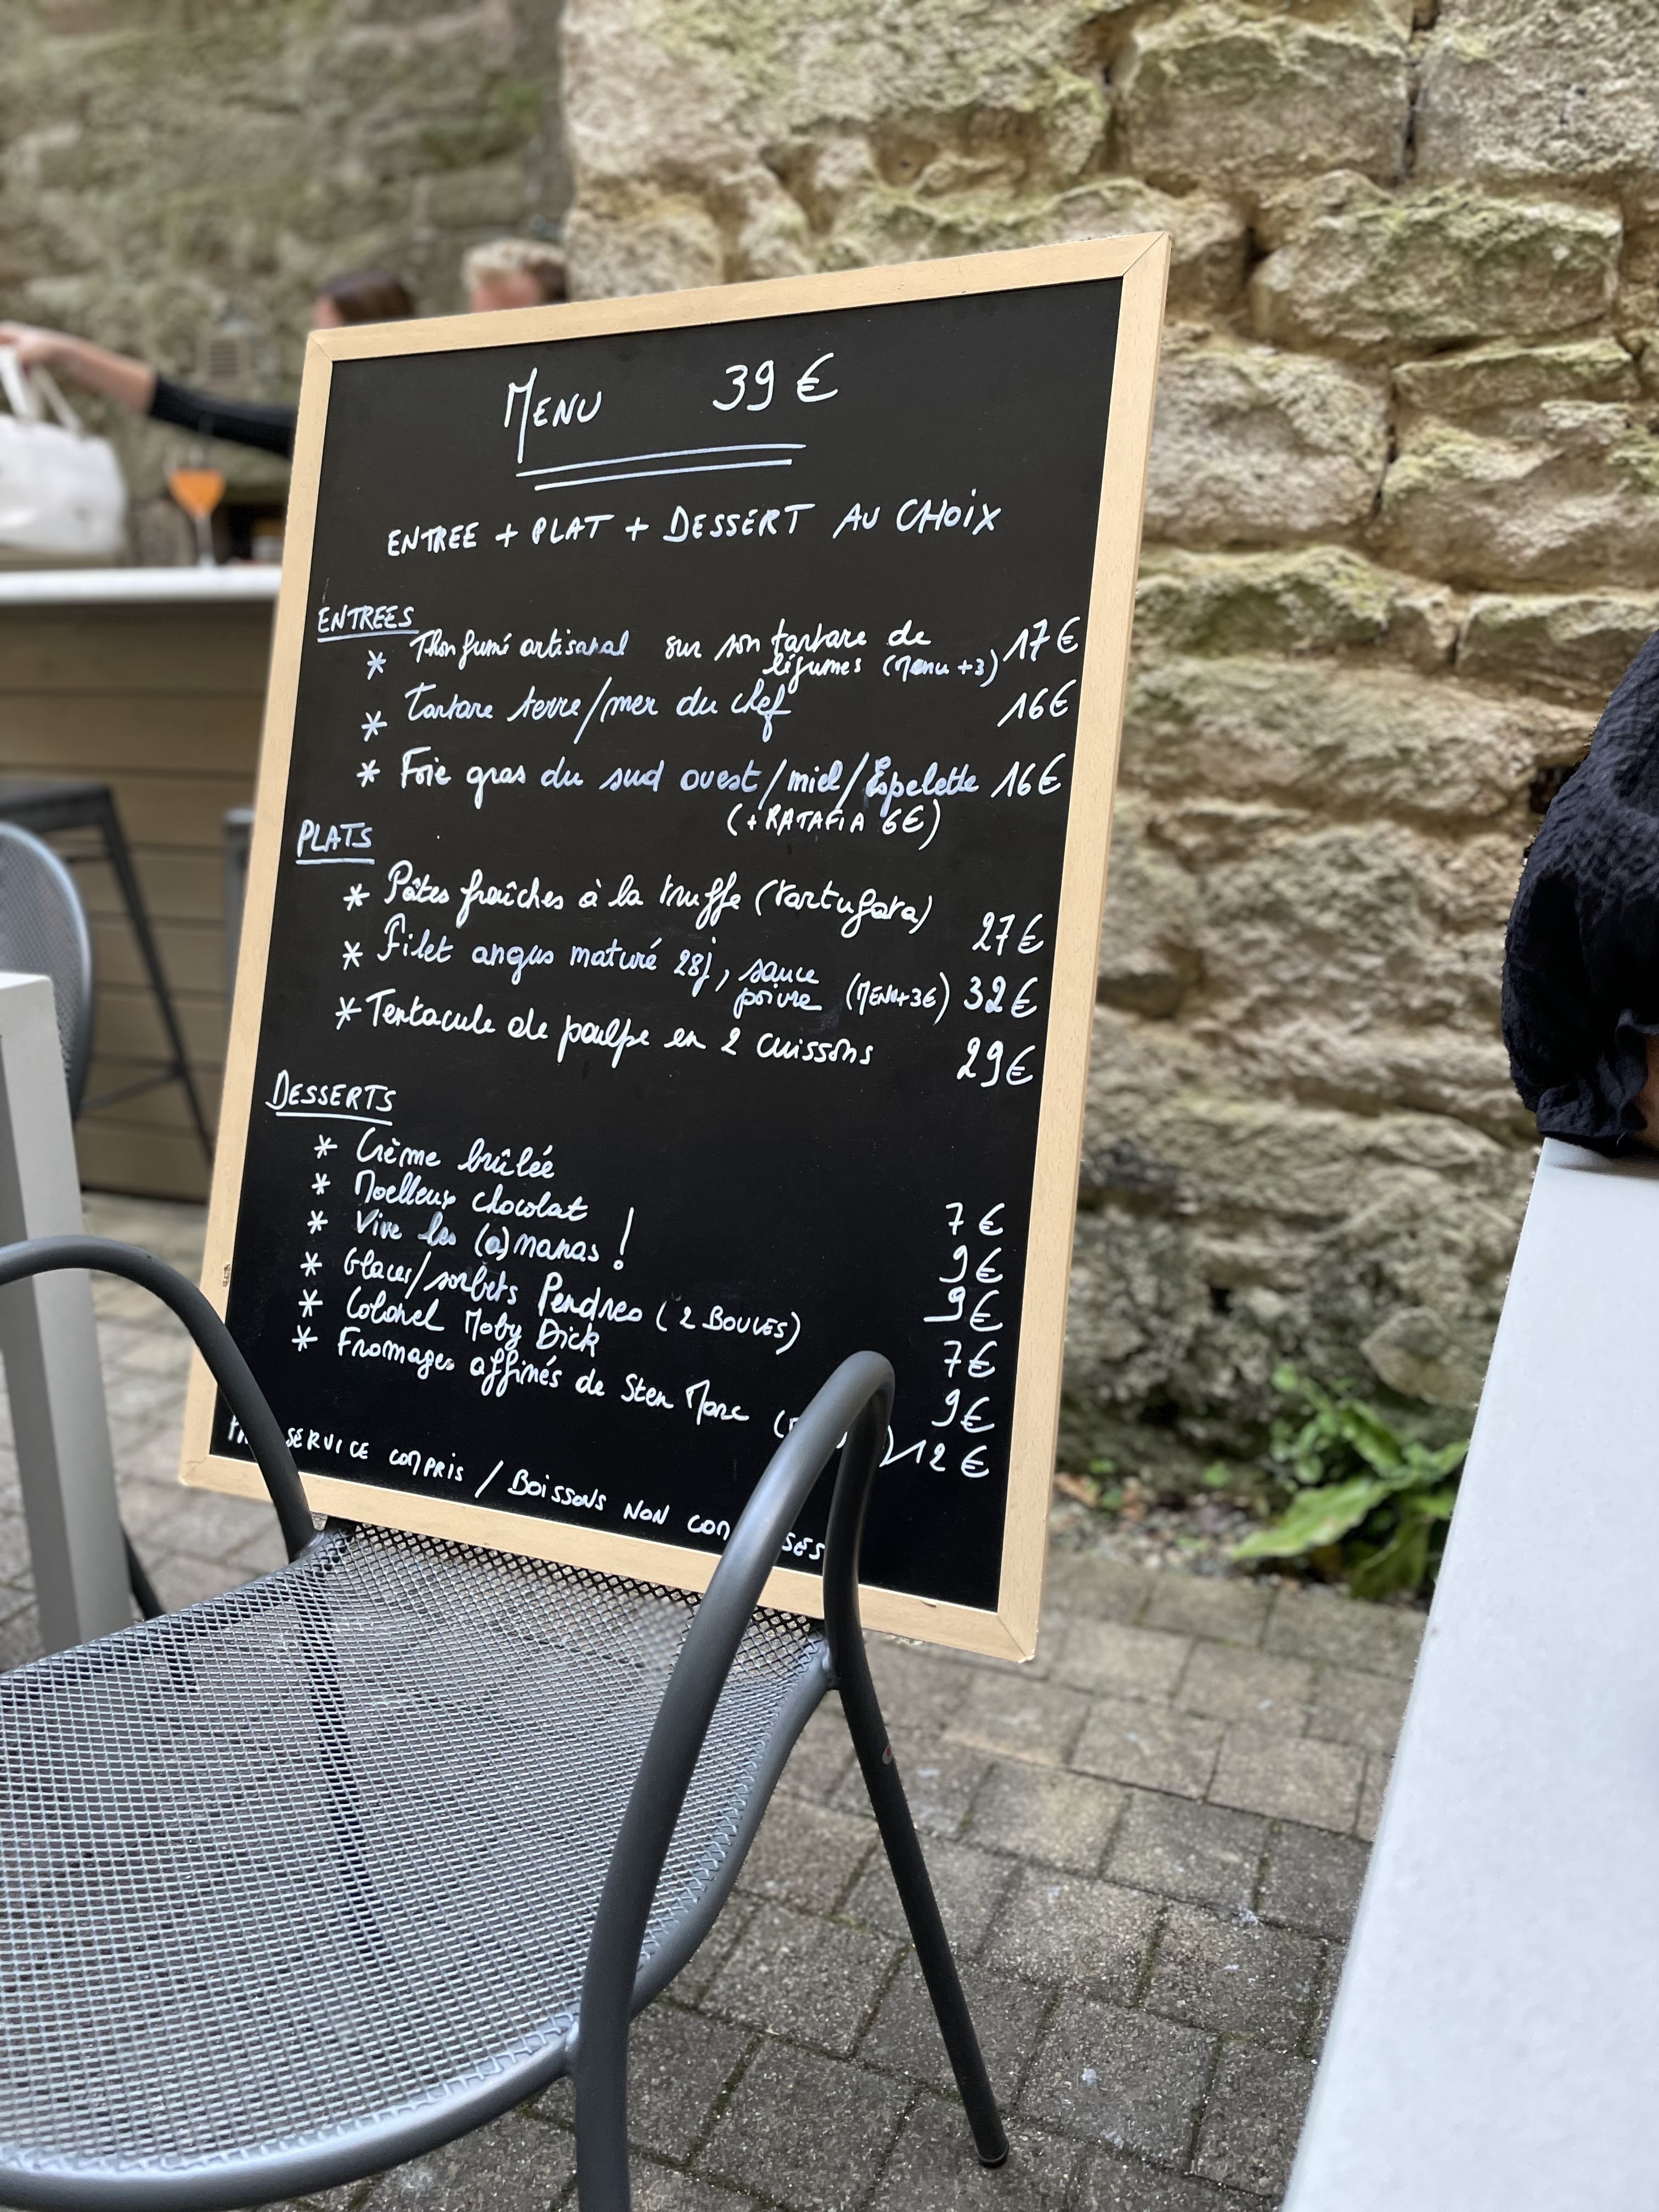 MENU 39 €
ENTREE + PLAT + DESSERT AU CHOIX
ENTREES
* Thon fumé artisanal sur son tartare de
légumes (Menu +3) 17€
* Tartare terre/mer du chef 16€
* Foie gras du sud ouest/miel/Espelette 16€
(+ RATAFIA 6€)
PLATS
* Pâtes fraîches à la truffe (tartufata) 27€
* Filet angus maturé 28j, sauce
poivre (MENU+3€) 32€
* Tentacule de poulpe en 2 cuissons 29€
DESSERTS
* Crème brûlée 7€
* Moelleux chocolat 9€
* Vive les (a)nanas ! 9€
* Glaces/sorbets Pendreo (2 BOULES) 7€
* Colonel Moby Dick 9€
* Fromages affinés de Sten Marc 12€
SERVICE COMPRIS / BOISSONS NON